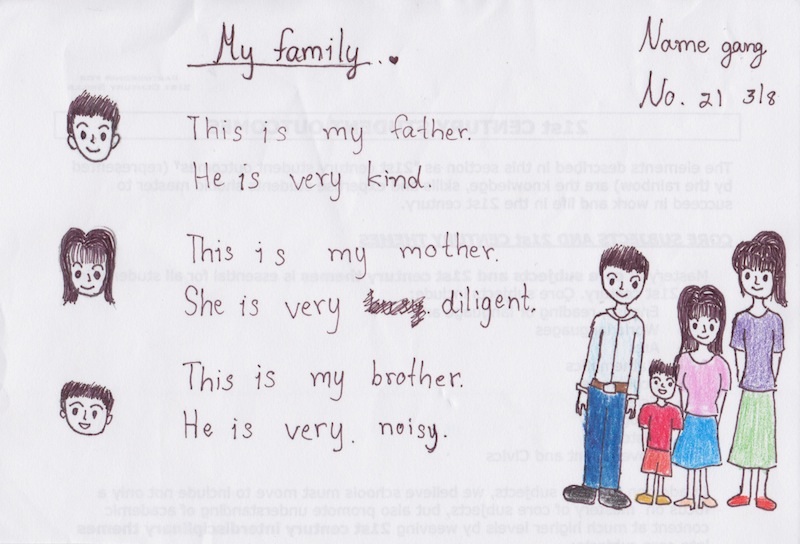 My family..
Name gang
No. 21 3/8
This is my father.
He is very kind.
This is my mother.
She is very diligent.
This is my brother.
He is very. noisy.